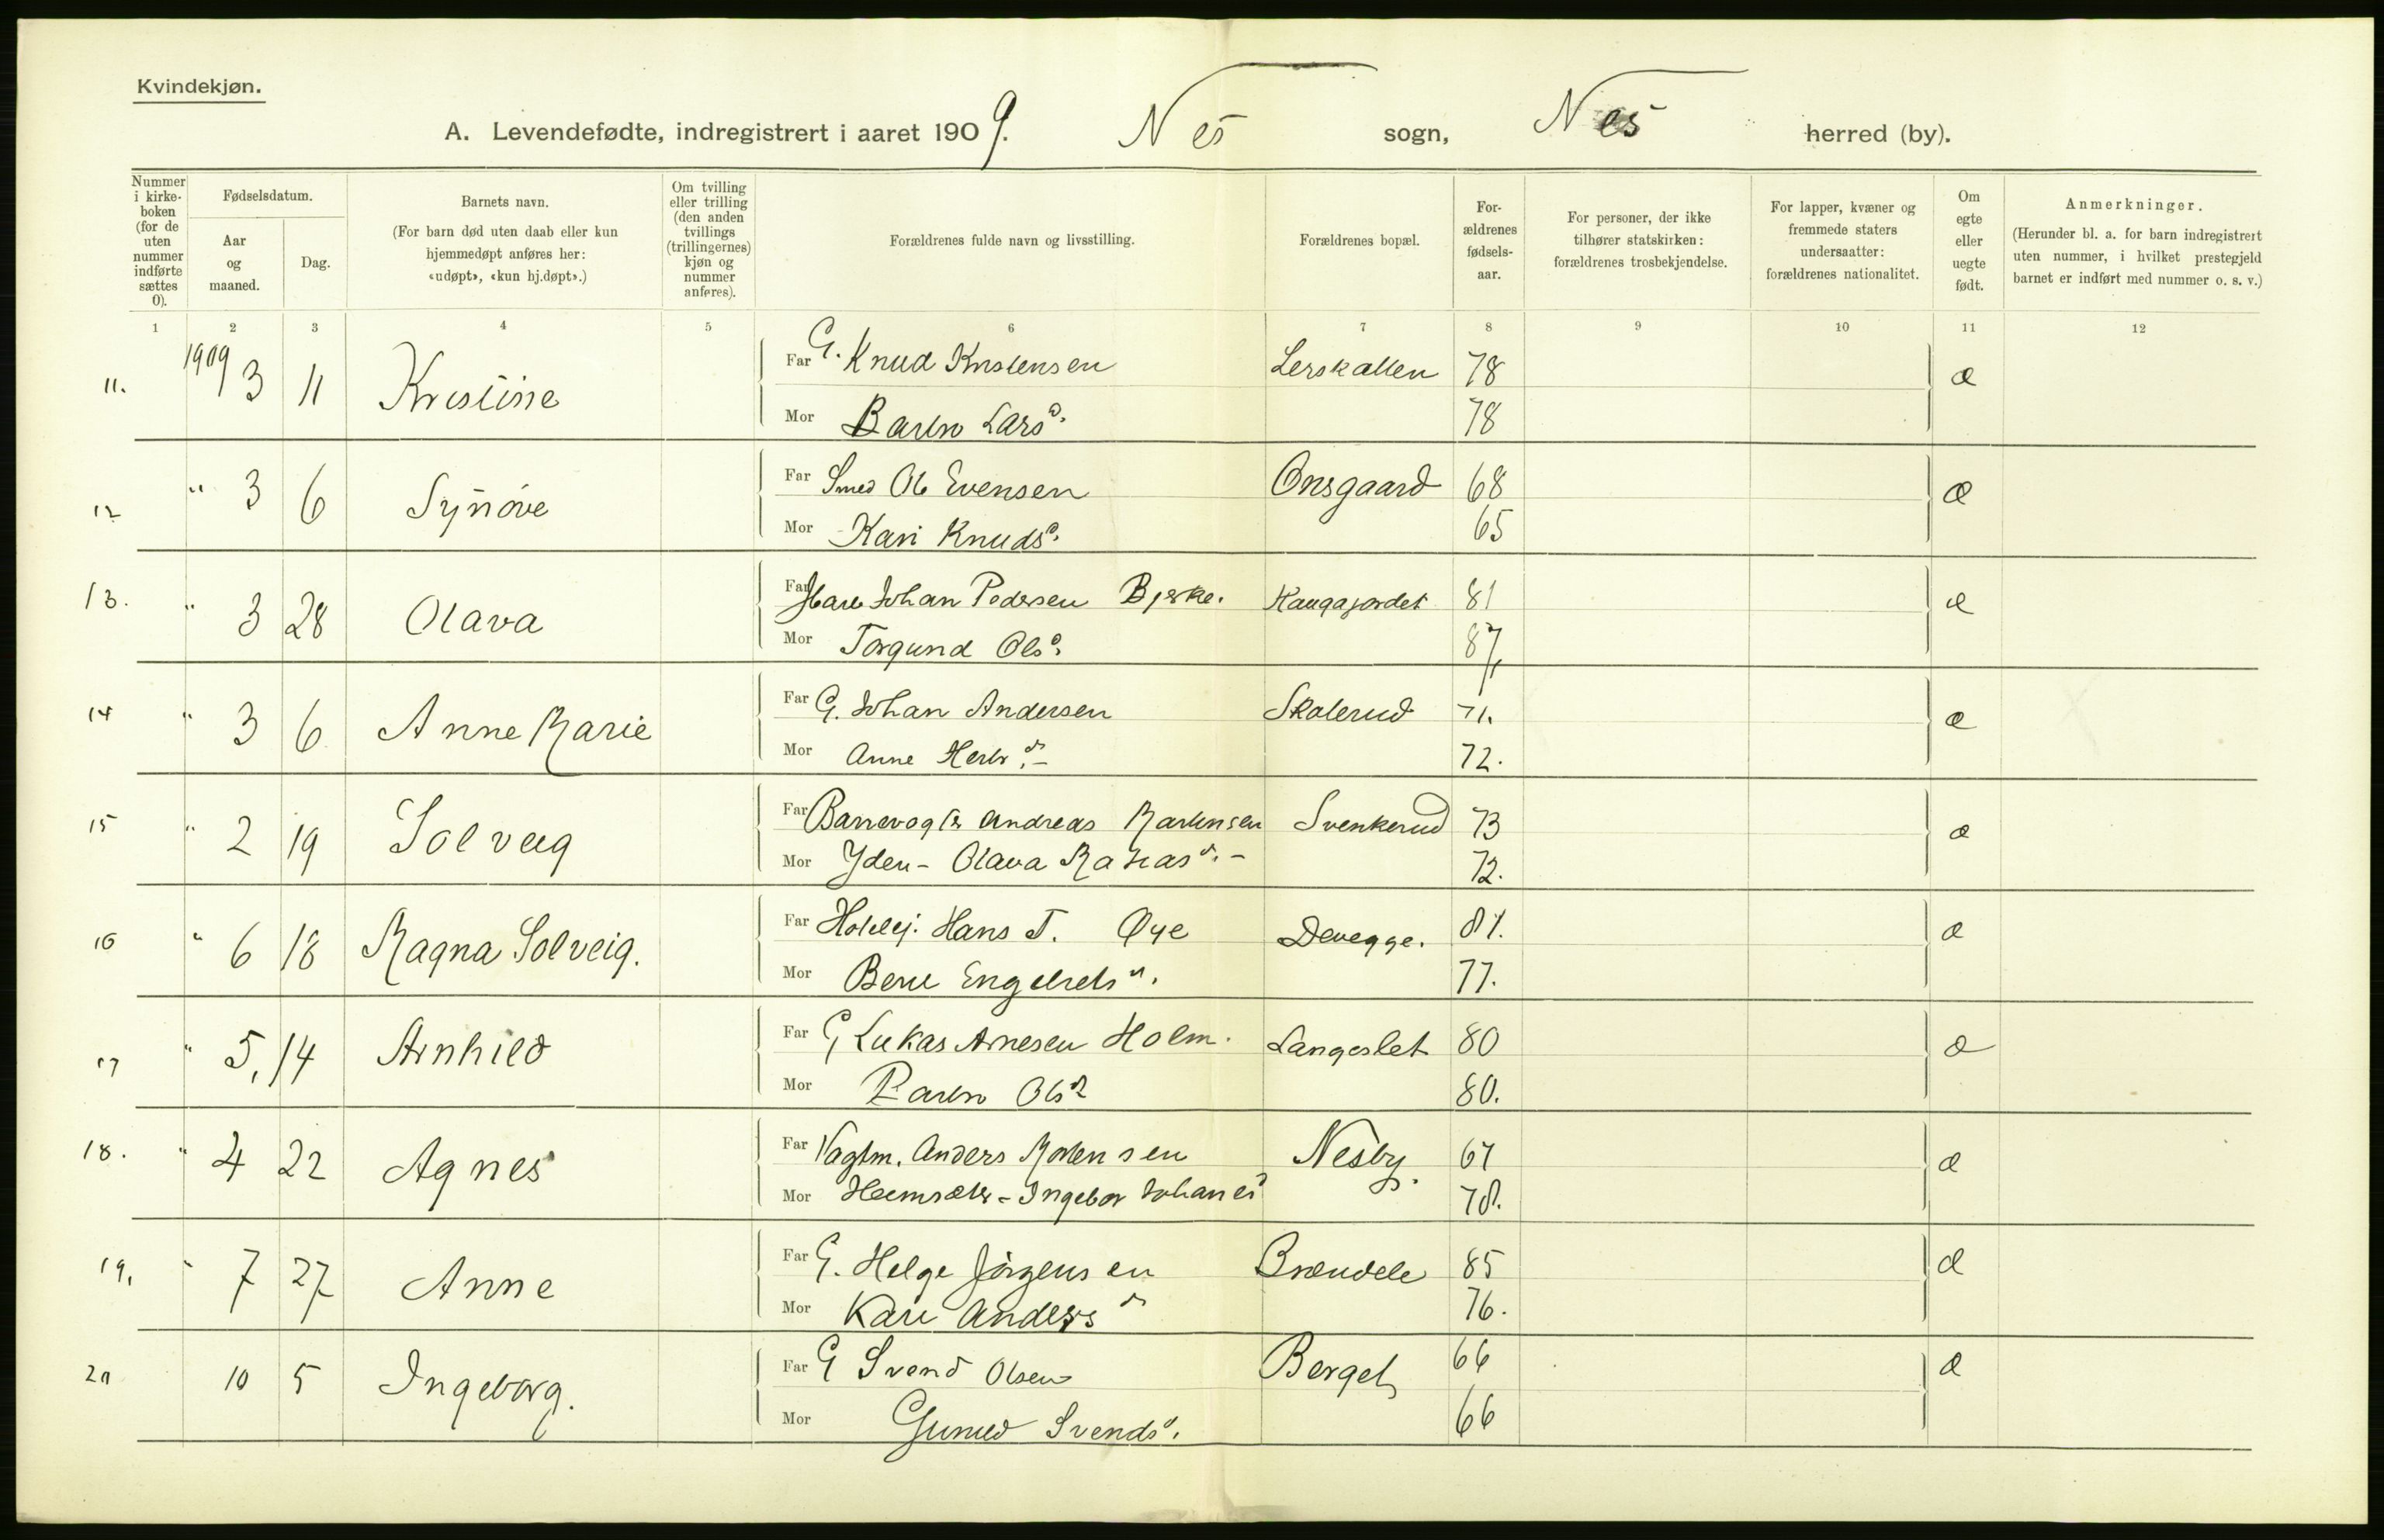 Kvindekjøn.
A. Levendefødte, indregistrert i aaret 1909. Nes sogn, Nes herred (by).
Nummer i kirke-boken (for de uten nummer indførte sættes 0).
Fødselsdatum.
Aar og maaned.
Dag.
Barnets navn.
(For barn død uten daab eller kun hjemmedøpt anføres her: «udøpt», «kun hj.døpt».)
Om tvilling eller trilling (den anden tvillings (trillingernes) kjøn og nummer anføres).
Forældrenes fulde navn og livsstilling.
Forældrenes bopæl.
For-ældrenes fødsels-aar.
For personer, der ikke tilhører statskirken: forældrenes trosbekjendelse.
For lapper, kvæner og fremmede staters undersaatter: forældrenes nationalitet.
Om egte eller uegte født.
Anmerkninger.
(Herunder bl. a. for barn indregistrert uten nummer, i hvilket prestegjeld barnet er indført med nummer o. s. v.)
1 2 3 4 5 6 7 8 9 10 11 12
11. 1909 3 11 Kristine Far G. Knud Kristensen Lerskallen 78 æ
Mor Lars d. 78
12 " 3 6 Synöve Far Smed Ole Evensen Onsgaard 68 æ
Mor Kari Knudsd. 65
13. " 3 28 Olava Far Johan Pedersen Bjerke. Haugajordet 81 æ
Mor Torgund Olsd. 87
14 " 3 6 Anne Marie Far G. Johan Andersen Skalerud 71. æ
Mor Anne 72.
15 " 2 19 Solveig Far Andreas Svenkerud 73 æ
Mor Olava 72.
16 " 6 18 Ragna Solveig. Far Hans T. Øye Devegge. 81. æ
Mor 77.
17 " 5, 14 Arnhild Far G. Lukas Arnesen Holm. Langeslet 80 æ
Mor Olsd 80.
18. " 4 22 Agnes Far Vagtm. Anders Nesby. 67 æ
Mor Ingebor 78.
19, " 7 27 Anne Far G. Helge Jörgensen Brendele 85 æ
Mor Kari Anders d 76.
20 10 5 Ingeborg. Far G Svend Olsen Berget 66 æ
Mor Svendsd. 66